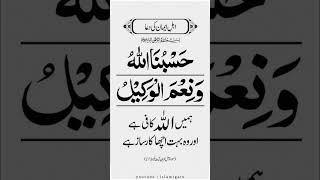 اہل ایمان کی دعا
حَسْبُنَا اللّٰهُ
وَنِعْمَ الْوَكِيْلُ
ہمیں اللہ کافی ہے
اور وہ بہت اچھا کارساز ہے